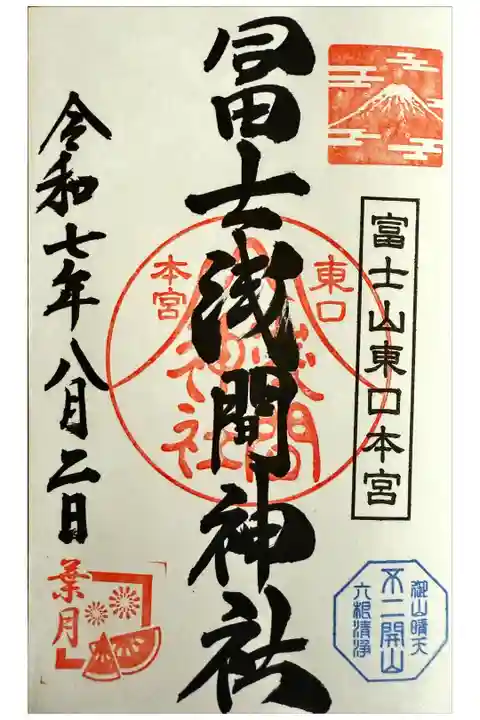 富士山東口本宮
御山晴天
不二開山
六根清浄
冨士浅間神社
東口
本宮
浅間
神社
令和七年八月二日
葉月